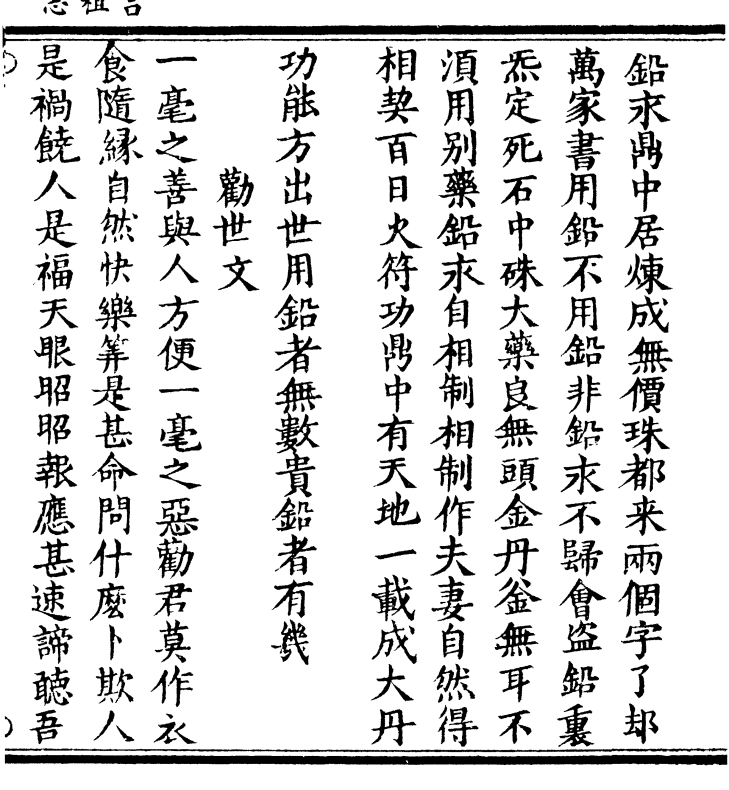 鉛汞鼎中居煉成無價珠都来兩個字了却
萬家書用鉛不用鉛非鉛汞不歸會盜鉛裏
炁定死石中硃大藥良無頭金丹釜無耳不
湏用别藥鉛汞自相制相制作夫妻自然得
相契百日火符功鼎中有天地一載成大丹
功能方出世用鉛者無數貴鉛者有幾
勸世文
一毫之善與人方便一毫之惡勸君莫作衣
食隨緣自然快樂筭是甚命問什麽卜欺人
是禍饒人是福天眼昭昭報應甚速諦聽吾